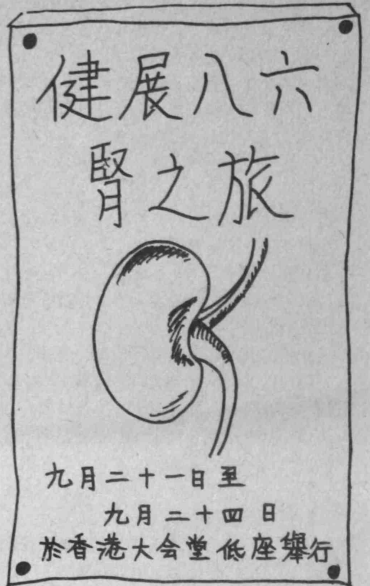 健展八六
腎之旅
九月二十一日至
九月二十四日
於香港大会堂低座舉行